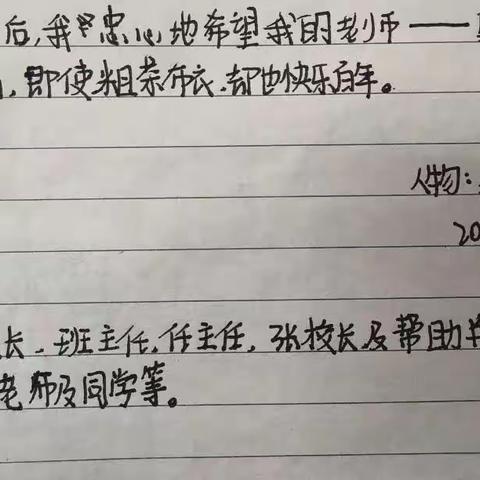 后,我忠心地希望我的老师——
,即使粗茶布衣.却也快乐百年。
人物:
20
长、班主任,任主任,张校长及帮助
老师及同学等。